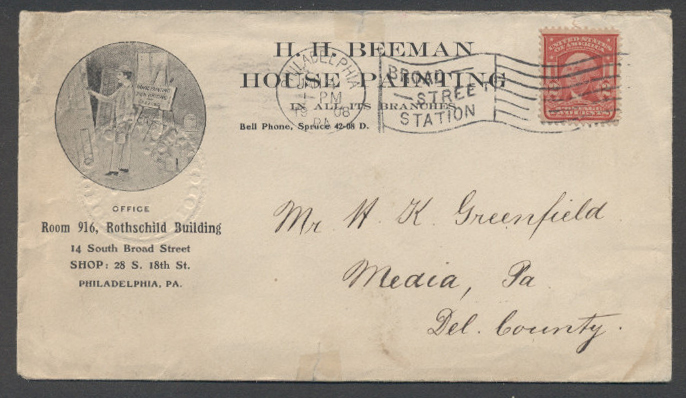 H. H. BEEMAN
HOUSE PAINTING
IN ALL ITS BRANCHES
Bell Phone, Spruce 42-08 D.
PHILADELPHIA
PM
1908
PA
BROAD
STREET
STATION
UNITED STATES
OF AMERICA
POSTAGE
TWO CENTS
OFFICE
Room 916, Rothschild Building
14 South Broad Street
SHOP: 28 S. 18th St.
PHILADELPHIA, PA.
Mr H. K. Greenfield
Media, Pa
Del. County.